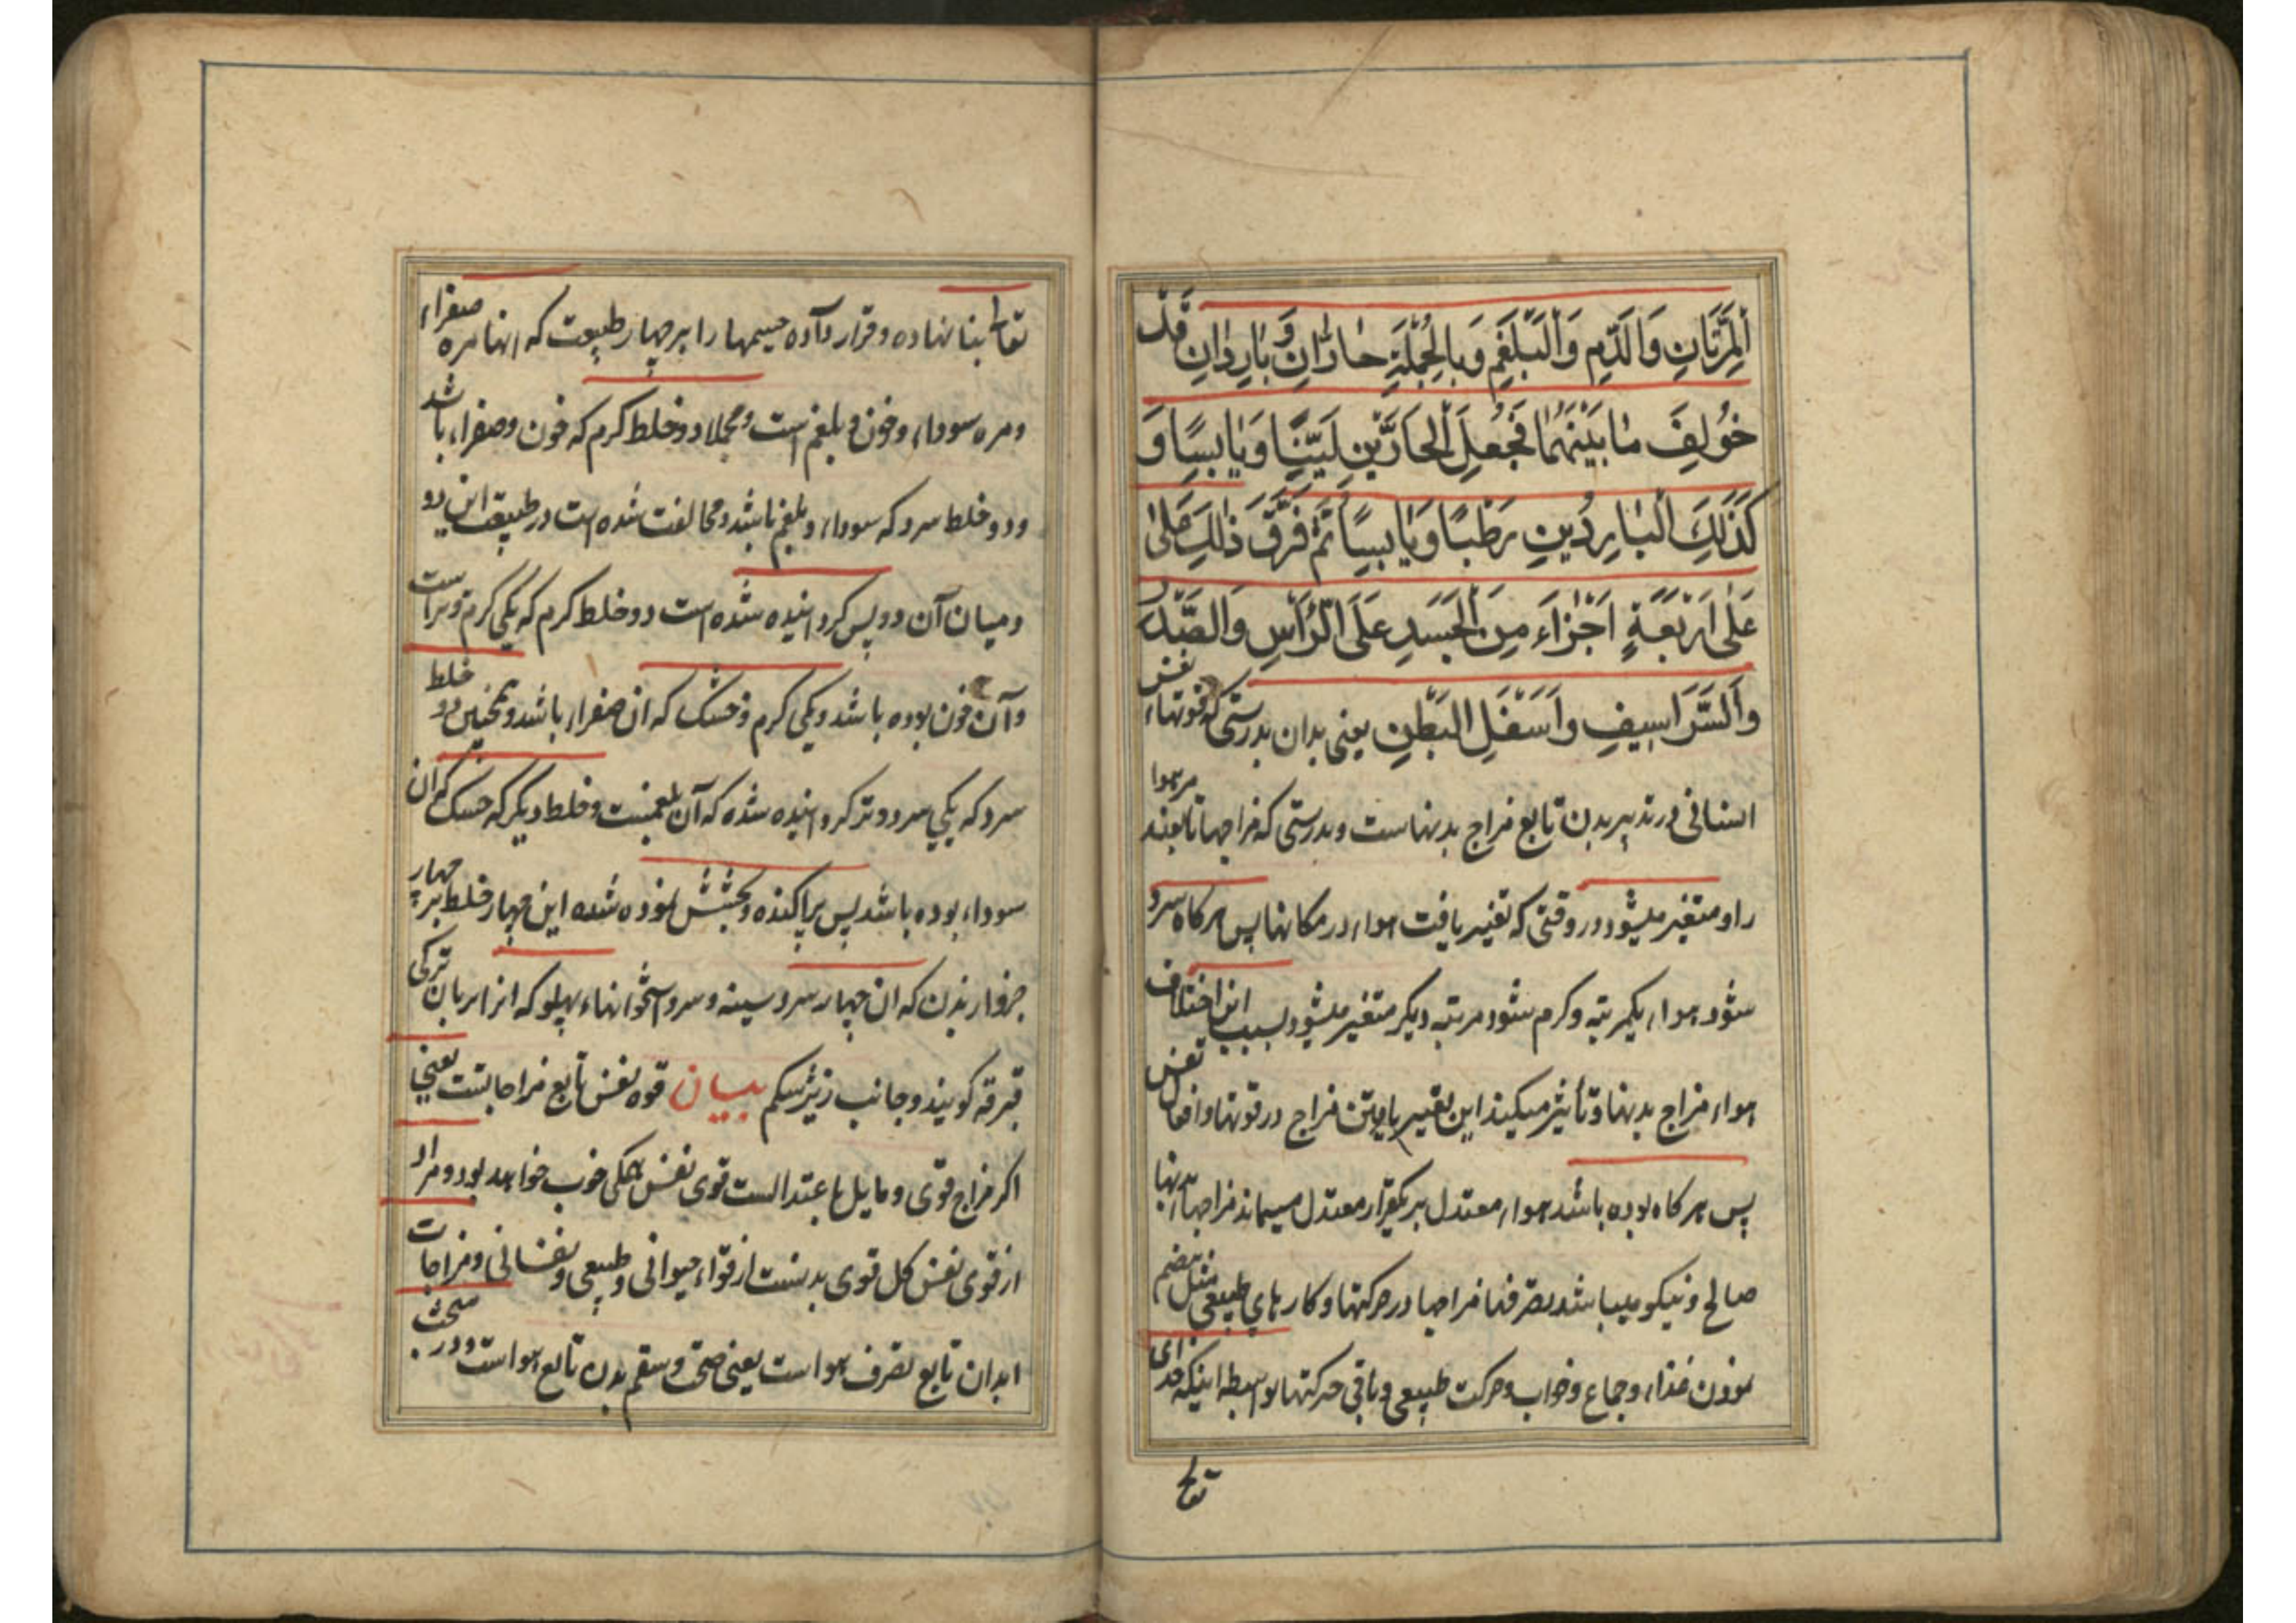 اَلْمِرَّتَانِ وَالدَّمِ وَالْبَلْغَمِ وَبِالْجُمْلَةِ حَارَّانِ وَبَارِدَانِ قَدْ
خُولِفَ مَا بَيْنَهُمَا فَجُعِلَ الْحَارَّيْنِ لَيِّنًا وَيَابِسًا وَ
كَذٰلِكَ الْبَارِدَيْنِ رَطْبًا وَيَابِسًا ثُمَّ فَرَّقَ ذٰلِكَ عَلٰى
عَلٰى اَرْبَعَةِ اَجْزَاءَ مِنَ الْجَسَدِ عَلَى الرَّأْسِ وَالصَّدْرِ
وَالشَّرَاسِيفِ وَاَسْفَلِ الْبَطْنِ یعنی بدان بدرستی که قوتهاء نفس
انسانی در تدبیر بدن تابع مزاج بدنهاست و بدرستی که مزاجها تابعند مر هوا
را و متغیر میشود در وقتی که تغییر یافت هواء در مکانها پس هرکاه سرد
شود هواء یکمرتبه و کرم شود مرتبه دیکر متغیر میشود بسبب این اختلاف
هواء مزاج بدنها و تأثیر میکند این تغییر یافتن مزاج در قوتها و افعال نفس
پس هرکاه بوده باشد هواء معتدل بر یکقرار معتدل میماند مزاجهاء بدنها
صالح و نیکو میباشد تصرفها مزاجها در حرکتها و کارهای طبیعی مثل هضم
نمودن غذاء و جماع و خواب و حرکت طبیعی و باقی حرکتها بواسطه اینکه خدای
تعالی
تعالی بنا نهاده و قرار داده جسمها را بر چهار طبیعت که انها مره صفراء
و مره سوداء و خون و بلغم است و مجملا دو خلط کرم که خون و صفراء باشد
و دو خلط سرد که سوداء و بلغم باشد و مخالفت شده است در طبیعت این دو
و میان آن دو پس کردانیده شده است دو خلط کرم که یکی کرم و تر است
و آن خون بوده باشد و یکی کرم و خشک که ان صفراء باشد و همچنین دو خلط
سرد که یکی سرد و تر کردانیده شده که آن بلغمست و خلط دیکر که خشک که ان
سوداء بوده باشد پس پراکنده و بخشش نموده شده این چهار خلط بر چهار
جزو از بدن که ان چهار سر و سینه و سر استخوانهاء پهلو که انرا بزبان ترکی
قبرقه کویند و جانب زیر شکم بیان قوه نفس تابع مزاجا بتست یعنی
اکر مزاج قوی و مایل باعتدالست قوی نفس همکی خوب خواهد بود و مراد
از قوی نفس کل قوی بدنست از قواء حیوانی و طبیعی و نفسانی و مزاجات
ابدان تابع تصرف هواست یعنی صحت و سقم بدن تابع هواست و در مبحث